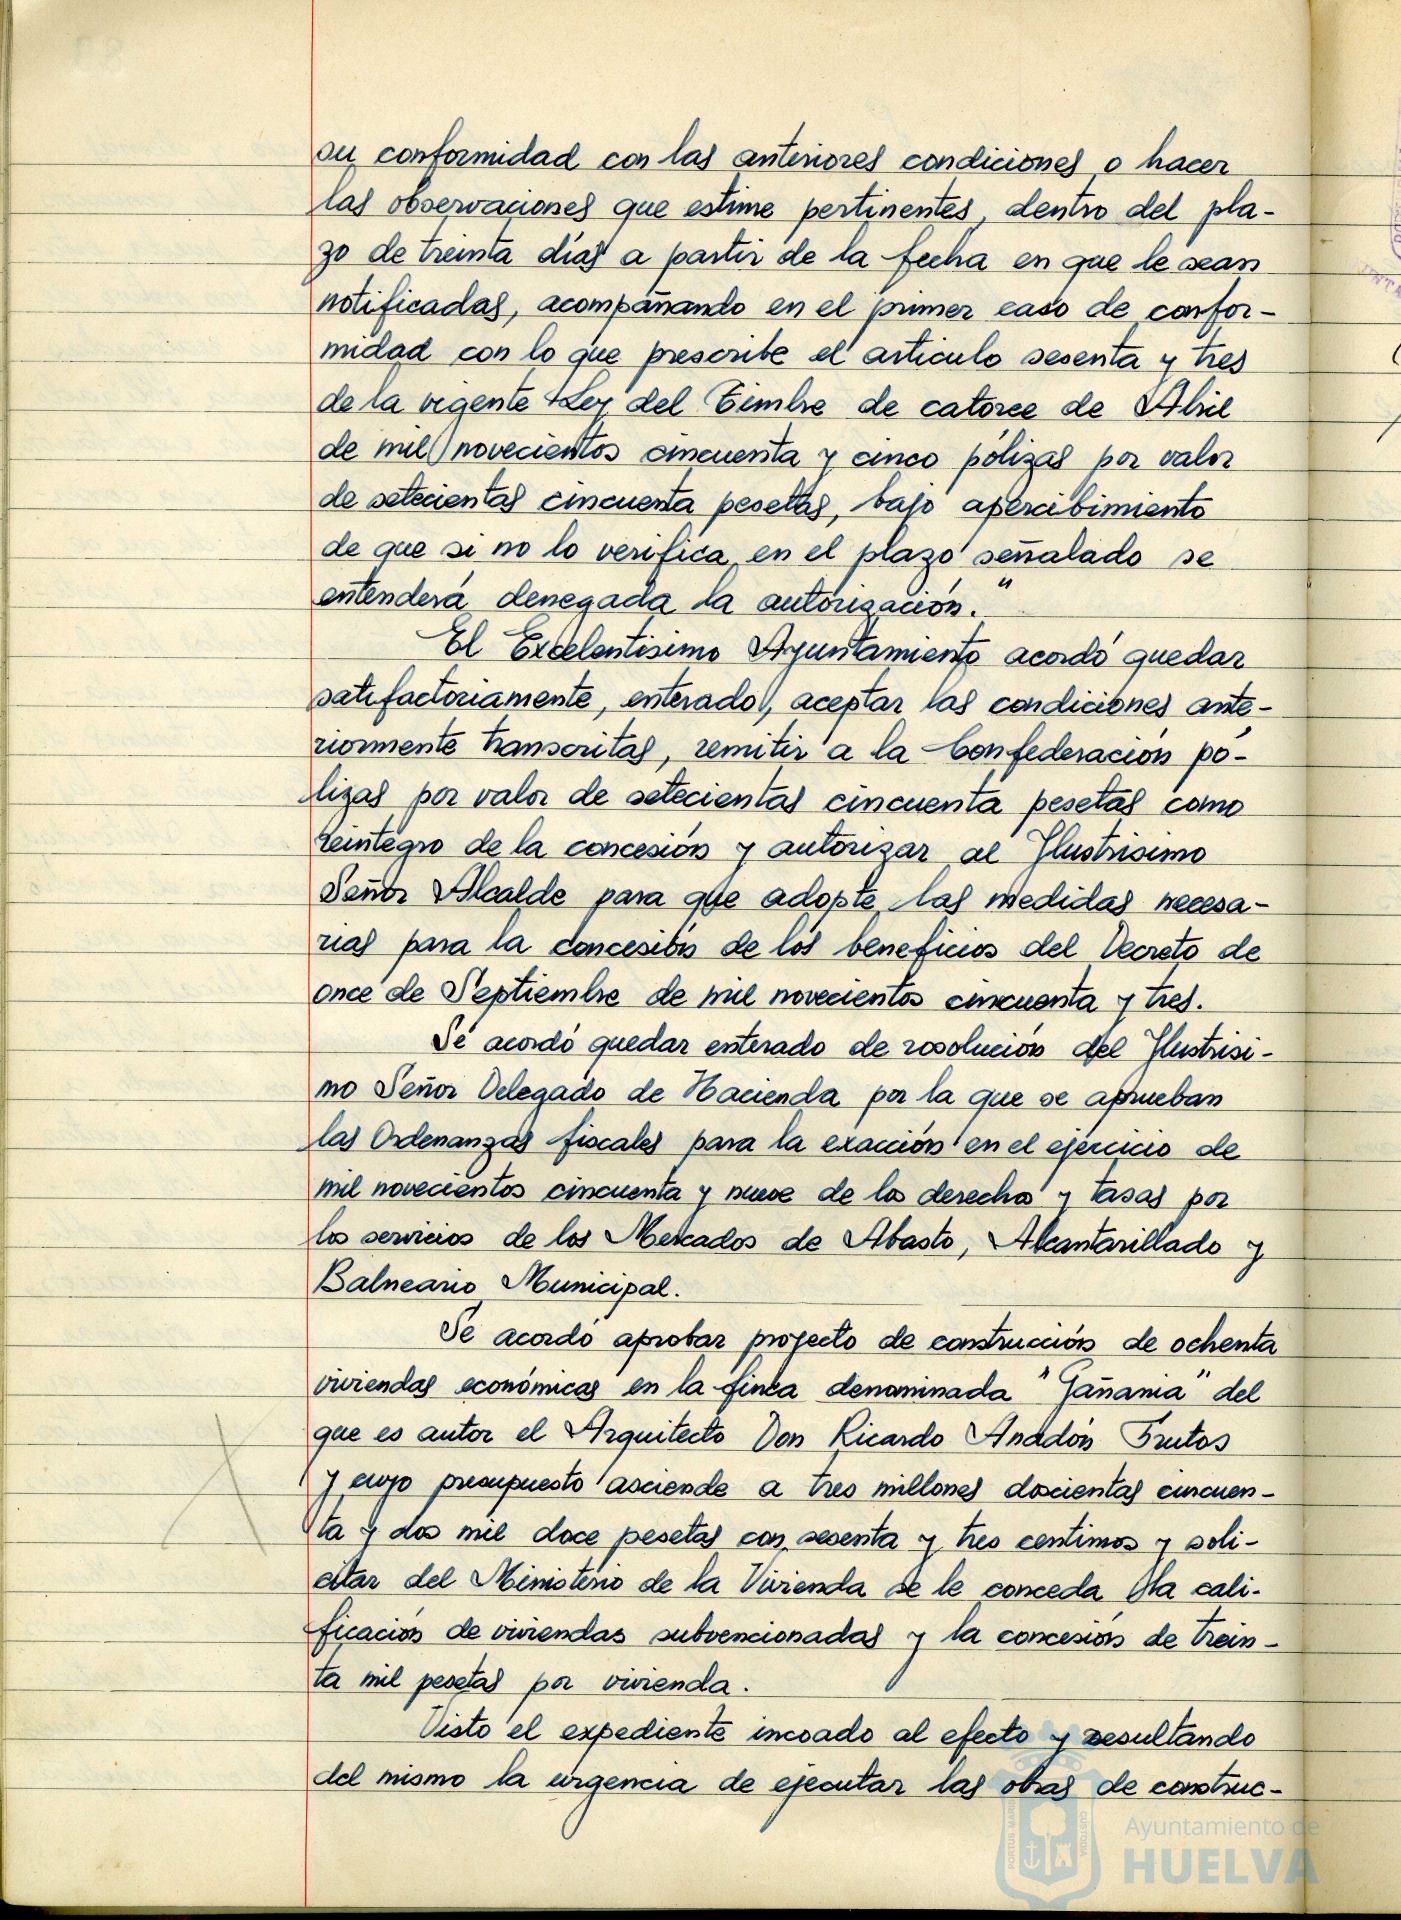 su conformidad con las anteriores condiciones o hacer
las observaciones que estime pertinentes, dentro del pla-
zo de treinta días a partir de la fecha en que le sean
notificadas, acompañando en el primer caso de confor-
midad con lo que prescribe el articulo sesenta y tres
de la vigente Ley del Timbre de catorce de Abril
de mil novecientos cincuenta y cinco pólizas por valor
de setecientas cincuenta pesetas, bajo apercibimiento
de que si no lo verifica en el plazo señalado se
entenderá denegada la autorización."
El Excelentisimo Ayuntamiento acordó quedar
satifactoriamente, enterado, aceptar las condiciones ante-
riormente transcritas, remitir a la Confederación pó-
lizas por valor de setecientas cincuenta pesetas como
reintegro de la concesión y autorizar al Ilustrisimo
Señor Alcalde para que adopte las medidas necesa-
rias para la concesión de los beneficios del Decreto de
once de Septiembre de mil novecientos cincuenta y tres.
Se acordó quedar enterado de resolución del Ilustrisi-
mo Señor Delegado de Hacienda por la que se aprueban
las Ordenanzas fiscales para la exacción en el ejercicio de
mil novecientos cincuenta y nueve de los derechos y tasas por
los servicios de los Mercados de Abasto, Alcantarillado y
Balneario Municipal.
Se acordó aprobar proyecto de construcción de ochenta
viviendas económicas en la finca denominada "Gañania" del
que es autor el Arquitecto Don Ricardo Anadón Frutos
y cuyo presupuesto asciende a tres millones doscientas cincuen-
ta y dos mil doce pesetas con sesenta y tres centimos y soli-
citar del Ministerio de la Vivienda se le conceda la cali-
ficación de viviendas subvencionadas y la concesión de trein-
ta mil pesetas por vivienda.
Visto el expediente incoado al efecto y resultando
del mismo la urgencia de ejecutar las obras de construc-
Ayuntamiento de
HUELVA